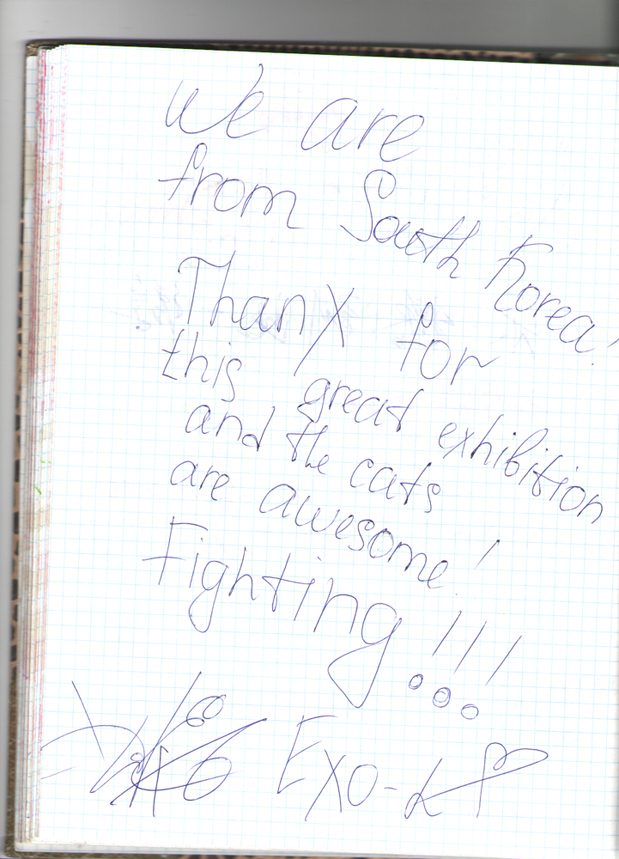 We are
from South Korea!
ThanX for
this great exhibition
and the cats
are awesome!
Fighting!!!
Exo-K